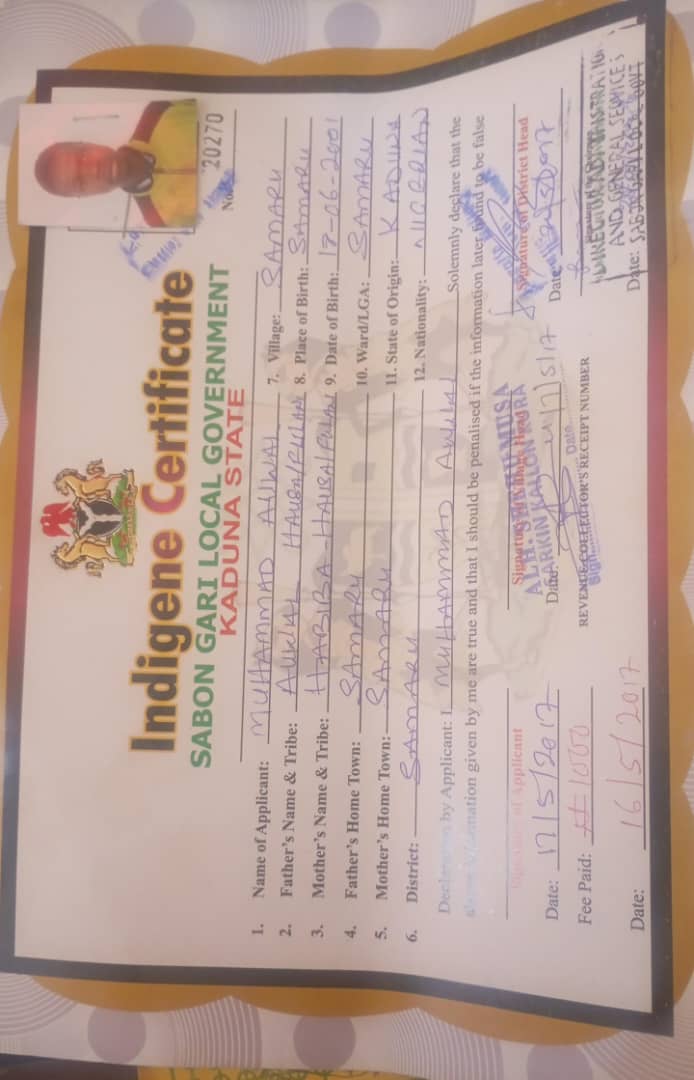 Indigene Certificate
SABON GARI LOCAL GOVERNMENT
KADUNA STATE
No. 20270
1. Name of Applicant: MUHAMMAD AUWAL
2. Father's Name & Tribe: AUWAL HAUSA/FULANI
3. Mother's Name & Tribe: HABIBA-HAUSA/FULANI
4. Father's Home Town: SAMARU
5. Mother's Home Town: SAMARU
6. District: SAMARU
7. Village: SAMARU
8. Place of Birth: SAMARU
9. Date of Birth: 17-06-2001
10. Ward/LGA: SAMARU
11. State of Origin: KADUNA
12. Nationality: NIGERIAN
Declaration by Applicant: I MUHAMMAD AUWAL Solemnly declare that the
above information given by me are true and that I should be penalised if the information later found to be false
Signature of Applicant
Signature of Village Head
Signature of District Head
Date: 17/5/2017
Date
Date
Fee Paid: ₦1000
REVENUE COLLECTOR'S RECEIPT NUMBER
Date: 16/5/2017
DIRECTOR ADMINISTRATION
AND GENERAL SERVICES
Date: